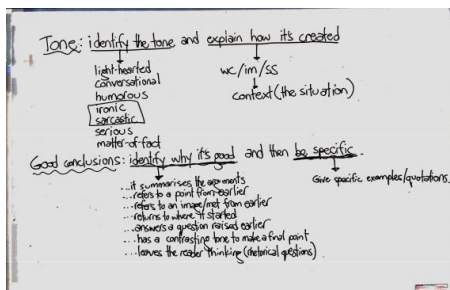 Tone: identify the tone and explain how it's created
light-hearted
conversational
humorous
ironic
sarcastic
serious
matter-of-fact
wc/im/ss
context (the situation)
Good conclusions: identify why it's good and then be specific.
...it summarises the arguments
...refers to a point from earlier
...refers to an image/met from earlier
...returns to where it started
...answers a question raised earlier
...has a contrasting tone to make a final point
...leaves the reader thinking (rhetorical questions)
Give specific examples/quotations.